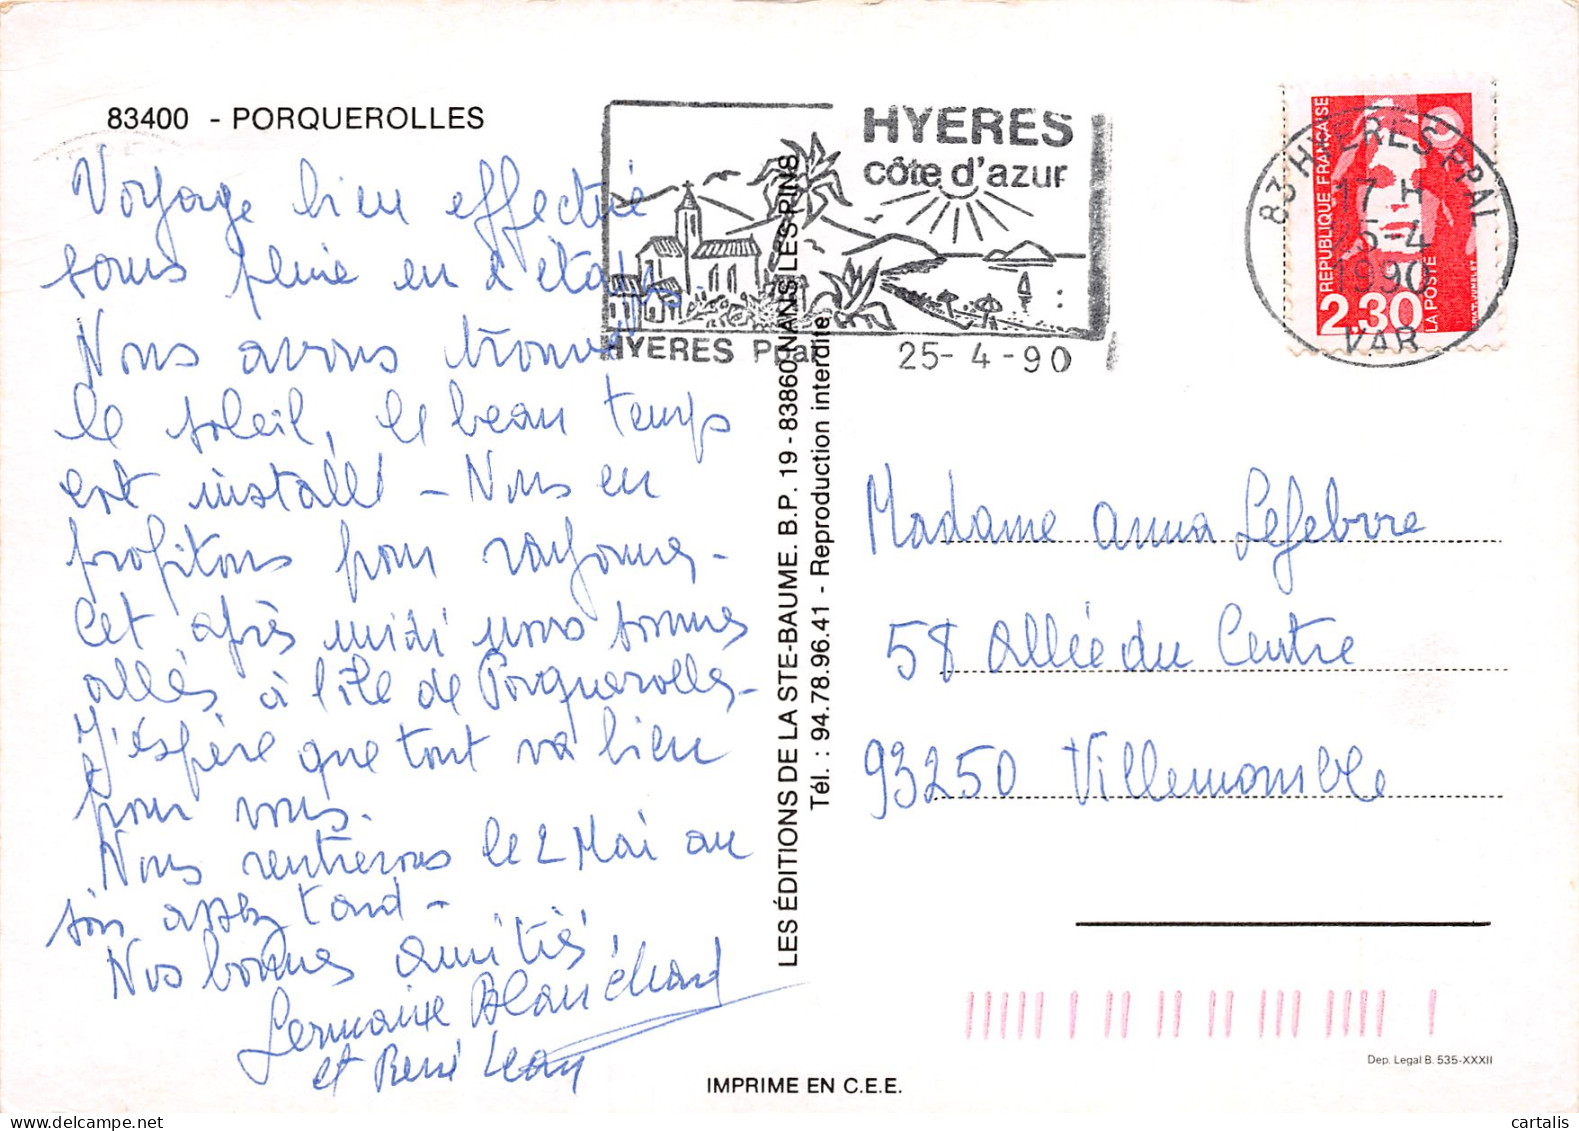 83400 - PORQUEROLLES
Voyage bien effectué
sous pluie en 2 étapes.
Nous avons trouvé
le soleil, le beau temps
est installé - Nous en
profitons pour rayonner -
Cet après midi nous sommes
allés à l'île de Porquerolles -
J'espère que tout va bien
pour vous.
Nous rentrerons le 2 Mai au
soir assez tard -
Nos bonnes amitiés
Germaine Blanchard
et René
HYERES
côte d'azur
HYERES Ppal 25-4-90
83 HYERES PPAL
17 H
25-4
1990
VAR
REPUBLIQUE FRANÇAISE
2.30
LA POSTE
LES ÉDITIONS DE LA STE-BAUME. B.P. 19 - 83860 NANS-LES-PINS
Tél. : 94.78.96.41 - Reproduction interdite
Madame Anna Lefebvre
58 Allée du Centre
93250 Villemomble
Dep. Legal B. 535-XXXII
IMPRIME EN C.E.E.
cartalis